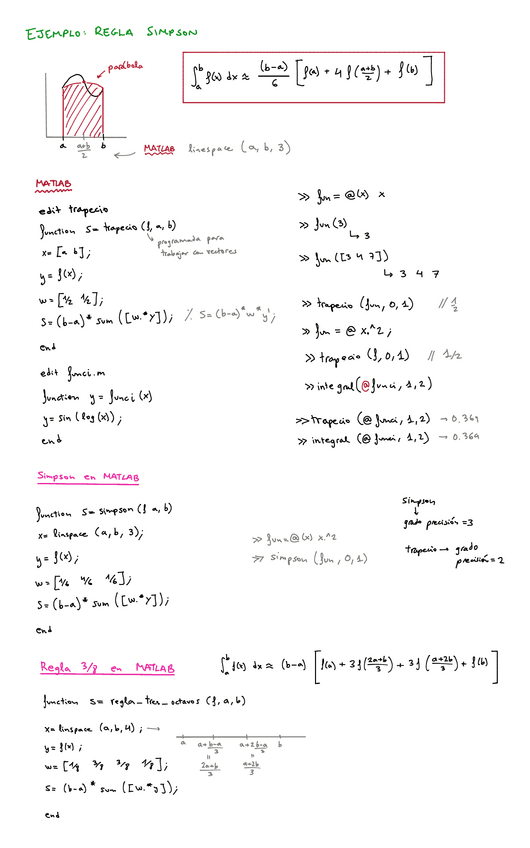 EJEMPLO: REGLA SIMPSON
parábola
∫_a^b f(x) dx ≈ (b-a)/6 [f(a) + 4 f((a+b)/2) + f(b)]
a (a+b)/2 b
MATLAB linespace (a, b, 3)
MATLAB
edit trapecio
function S= trapecio (f, a, b)
programada para
trabajar con vectores
x= [a b];
y= f(x);
w= [1/2 1/2];
S= (b-a)* sum ([w.*y]); % S=(b-a)*w*y';
end
edit funci.m
function y= funci (x)
y= sin (log(x));
end
>> fun = @(x) x
>> fun (3)
↳ 3
>> fun ([3 4 7])
↳ 3 4 7
>> trapecio (fun, 0, 1) // 1/2
>> fun = @ x.^2;
>> trapecio (f, 0, 1) // 1/2
>> integral (@funci, 1, 2)
>> trapecio (@ funci, 1, 2) → 0.369
>> integral (@ funci, 1, 2) → 0.369
Simpson en MATLAB
function S= simpson (f a, b)
x= linspace (a, b, 3);
y= f(x);
w= [1/6 4/6 1/6];
S= (b-a)* sum ([w.*y]);
end
>> fun=@(x) x.^2
>> simpson (fun, 0, 1)
Simpson
↓
grado precisión =3
trapecio → grado
precisión = 2
Regla 3/8 en MATLAB
∫_a^b f(x) dx ≈ (b-a) [f(a) + 3f((2a+b)/3) + 3f((a+2b)/3) + f(b)]
function S= regla_tres_octavos (f, a, b)
x= linspace (a, b, 4); →
y= f(x);
w= [1/8 3/8 3/8 1/8];
S= (b-a)* sum ([w.*y]);
end
a a+(b-a)/3 a+2(b-a)/3 b
= =
(2a+b)/3 (a+2b)/3